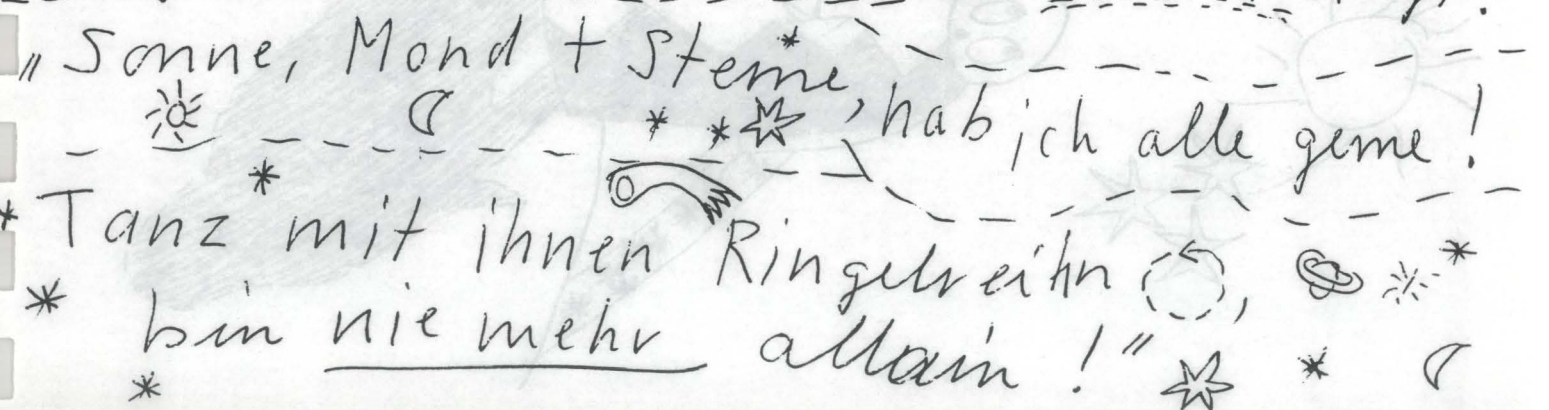 „Sonne, Mond + Sterne, hab ich alle gerne!
Tanz mit ihnen Ringelreihn,
bin nie mehr allain!“